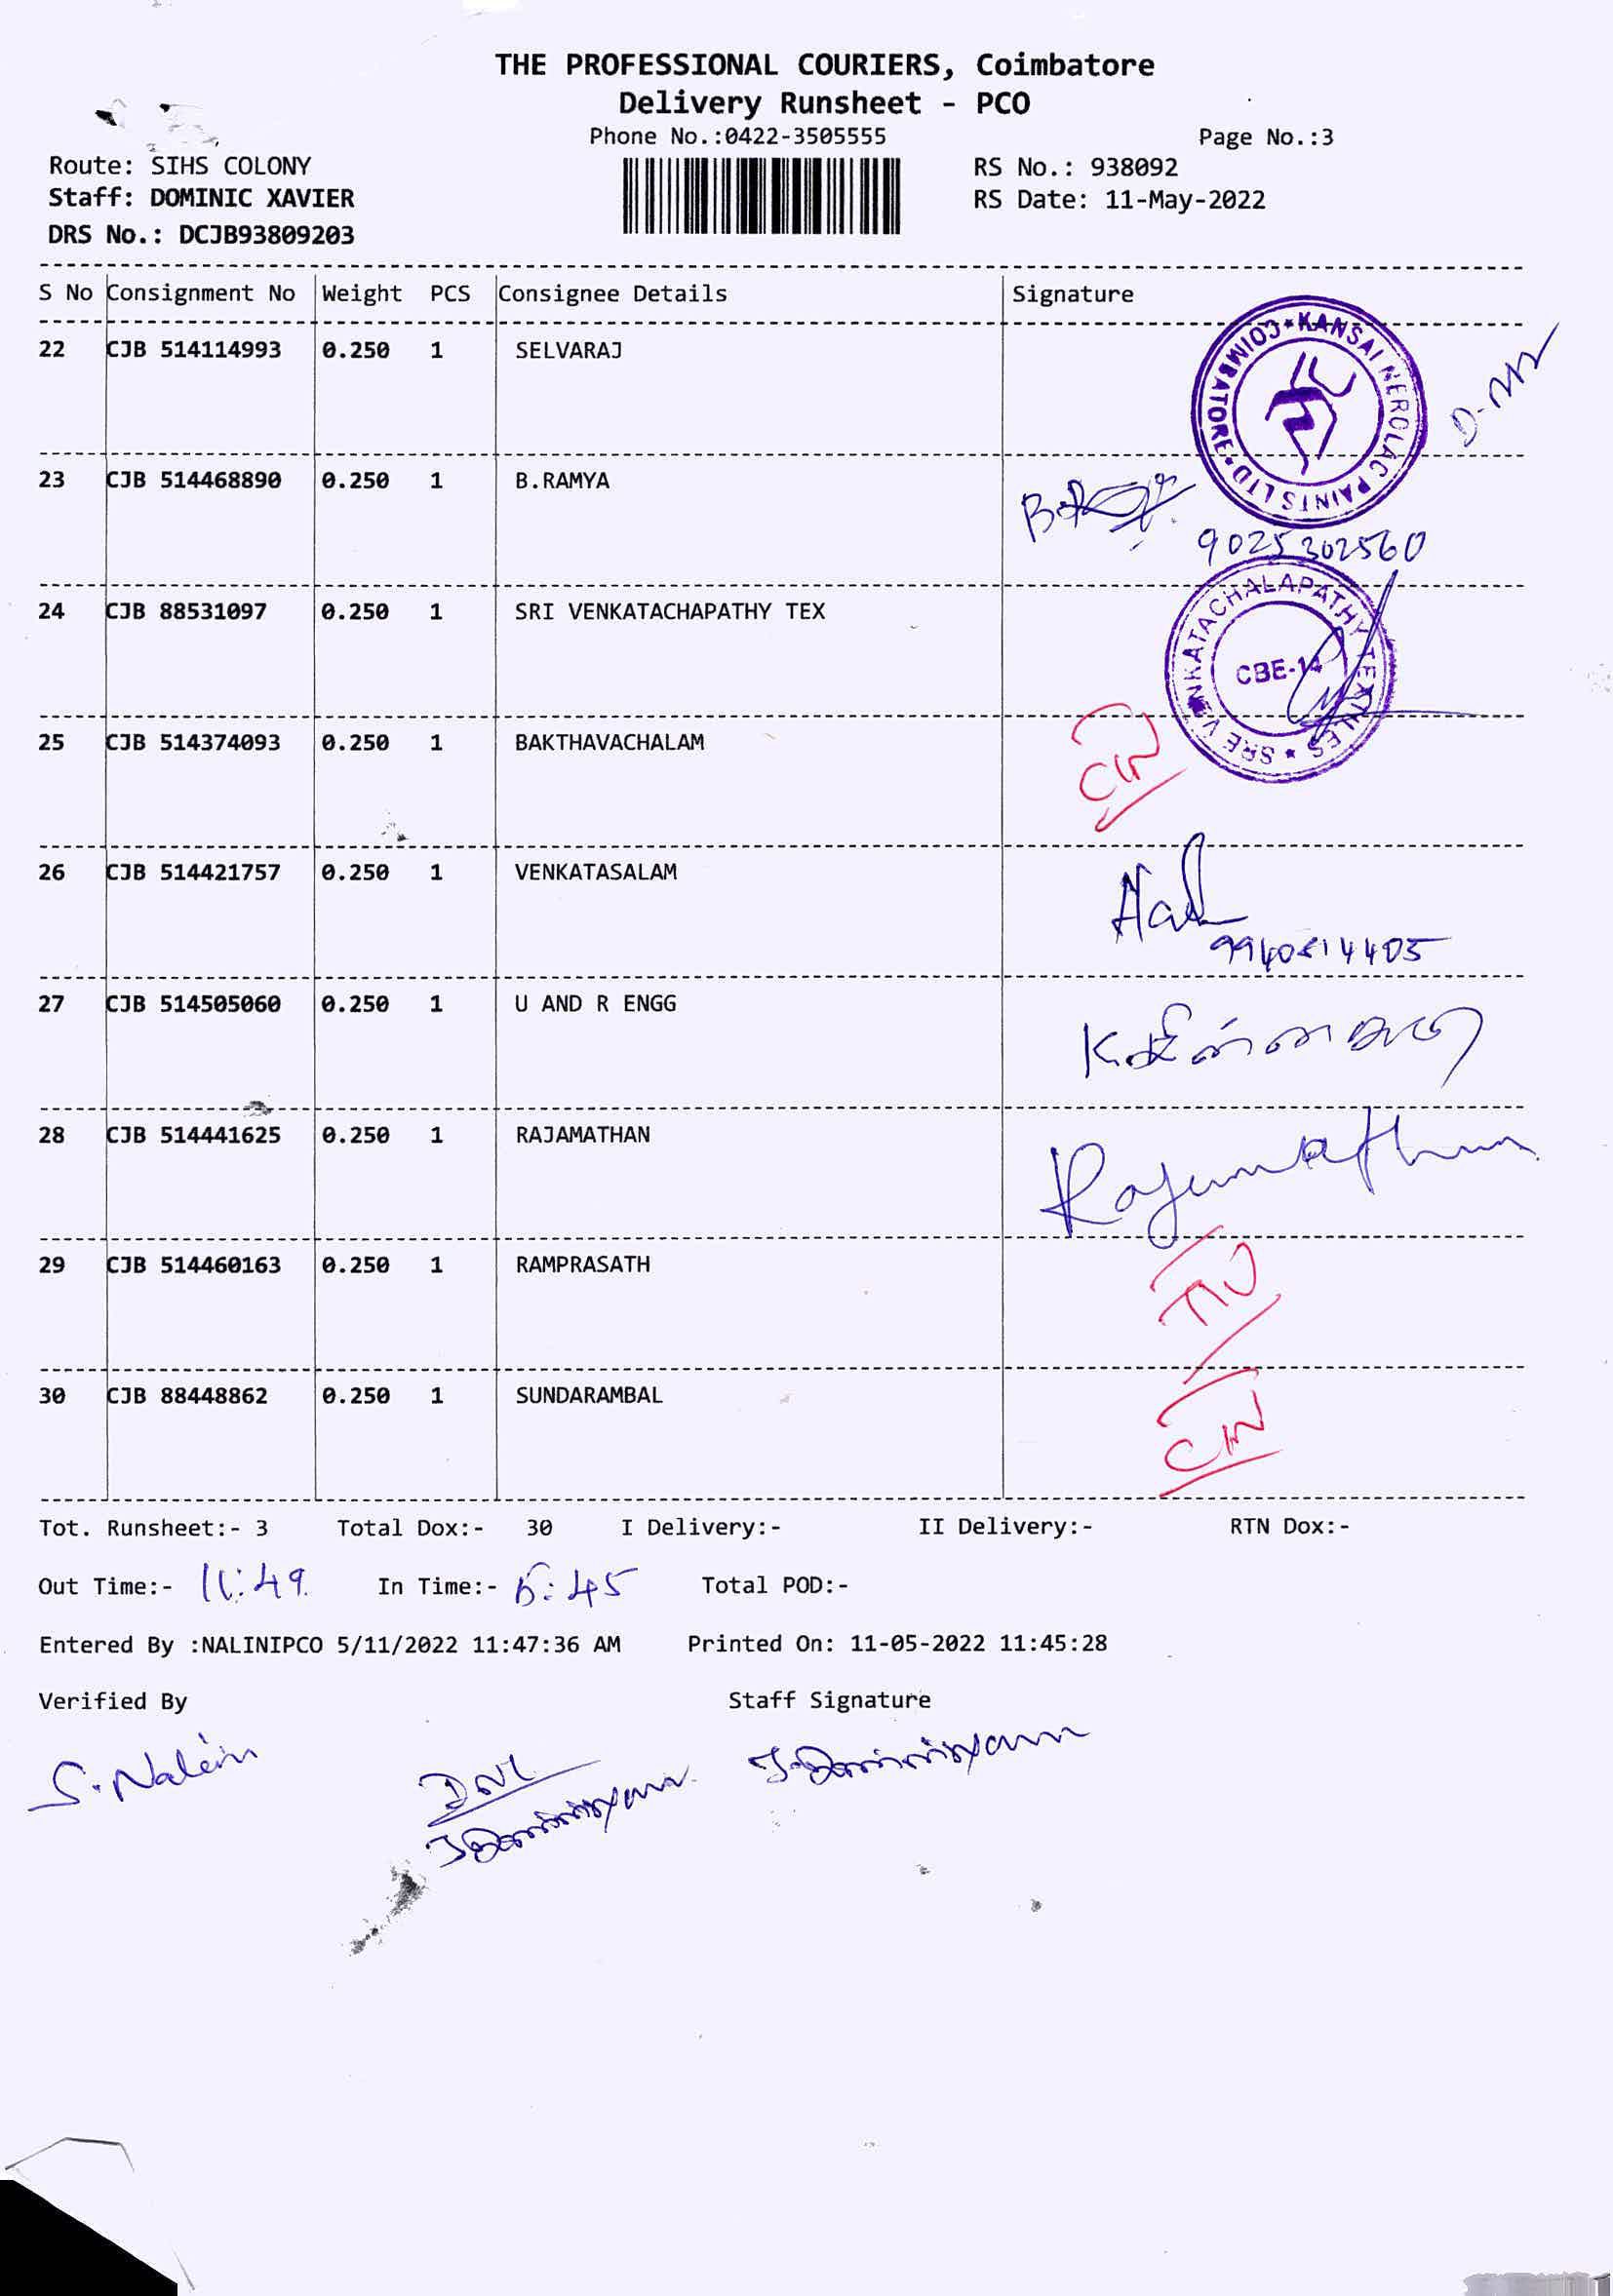 THE PROFESSIONAL COURIERS, Coimbatore
Delivery Runsheet - PCO
Phone No.:0422-3505555 Page No.:3
Route: SIHS COLONY RS No.: 938092
Staff: DOMINIC XAVIER RS Date: 11-May-2022
DRS No.: DCJB93809203
S No Consignment No Weight PCS Consignee Details Signature
22 CJB 514114993 0.250 1 SELVARAJ
KANSAI NEROLAC PAINTS LTD * COIMBATORE *
23 CJB 514468890 0.250 1 B.RAMYA
9025302560
24 CJB 88531097 0.250 1 SRI VENKATACHAPATHY TEX
SRE VENKATACHALAPATHY TEXTILES *
CBE-14
25 CJB 514374093 0.250 1 BAKTHAVACHALAM
26 CJB 514421757 0.250 1 VENKATASALAM
27 CJB 514505060 0.250 1 U AND R ENGG
28 CJB 514441625 0.250 1 RAJAMATHAN
29 CJB 514460163 0.250 1 RAMPRASATH
30 CJB 88448862 0.250 1 SUNDARAMBAL
Tot. Runsheet:- 3 Total Dox:- 30 I Delivery:- II Delivery:- RTN Dox:-
Out Time:- 11:49 In Time:- 5:45 Total POD:-
Entered By :NALINIPCO 5/11/2022 11:47:36 AM Printed On: 11-05-2022 11:45:28
Verified By Staff Signature
S. Nalini